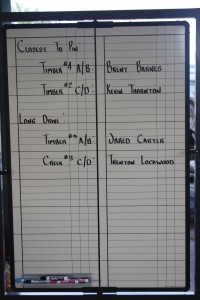 Closest To Pin
Timber #4 A/B- Brent Barnes
Timber #2 C/D- Kevin Thornton
Long Drive
Timber A/B- Jared Carter
Creek C/D- Trenton Lockwood